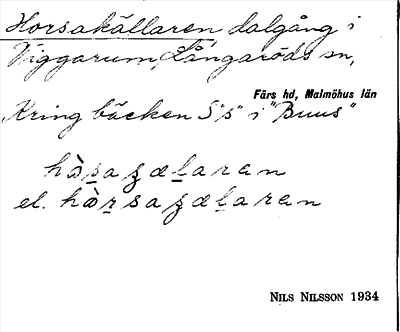 Horsakällaren, dalgång i
Viggarum, Långaröds sn,
Färs hd, Malmöhus län
Kring bäcken S"s" i "Buus"
hàs̱aʒæḻaran
el. hàṟsaʒæḻaran
NILS NILSSON 1934